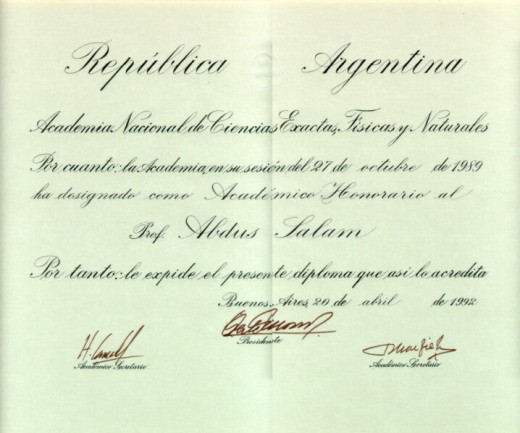 República Argentina
Academia Nacional de Ciencias Exactas, Físicas y Naturales
Por cuanto: la Academia, en su sesión del 27 de octubre de 1989
ha designado como Académico Honorario al
Prof. Abdus Salam
Por tanto: le expide el presente diploma que así lo acredita
Buenos Aires, 20 de abril de 1992
Presidente
Académico Secretario
Académico Secretario